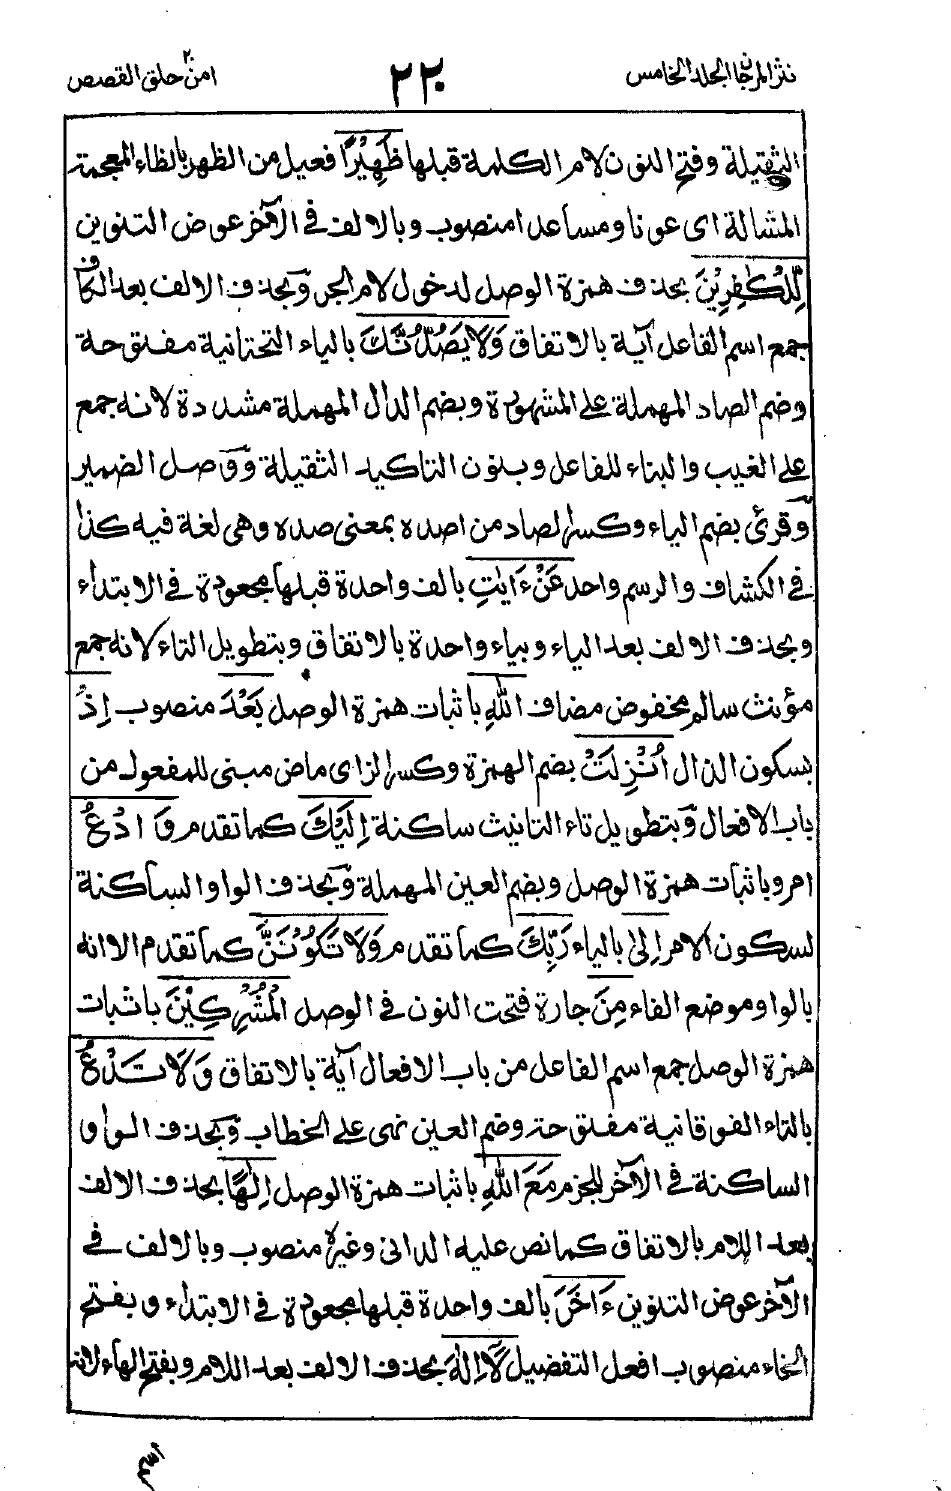 نثر المرجان الجلد الخامس ٢٢٠ امن خلق ٢٠ القصص
الثقيلة وفتح النون لام الكلمة قبلها ظَهِيْرًا فعيل من الظهر بالظاء المعجمة
المشالة اى عونا ومساعدا منصوب وبالالف في الآخر عوض التنوين
لِّلْكٰفِرِيْنَ بحذف همزة الوصل لدخول لام الجر وبحذف الالف بعد الكاف
جمع اسم الفاعل آية بالاتفاق وَلَا يَصُدُّنَّكَ بالياء التحتانية مفتوحة
وضم الصاد المهملة على المشهورة وبضم الدال المهملة مشددة لانه جمع
على الغيب والبناء للفاعل وبنون التاكيد الثقيلة ووصل الضمير
وقرئ بضم الياء وكسر الصاد من اصده بمعنى صده وهى لغة فيه كذا
في الكشاف والرسم واحد عَنْ ءَايٰتِ بالف واحدة قبلها مجعودة في الابتداء
وبحذف الالف بعد الياء وبياء واحدة بالاتفاق وبتطويل التاء لانه جمع
مؤنث سالم مخفوض مضاف اللّٰهِ باثبات همزة الوصل بَعْدَ منصوب اِذْ
بسكون الذال اُنْزِلَتْ بضم الهمزة وكسر الزاى ماض مبنى للمفعول من
باب الافعال وبتطويل تاء التانيث ساكنة اِلَيْكَ كما تقدم وَادْعُ
امر وباثبات همزة الوصل وبضم العين المهملة وبحذف الواو الساكنة
لسكون الامر اِلٰى بالياء رَبِّكَ كما تقدم وَلَا تَكُوْنَنَّ كما تقدم الا انه
بالواو موضع الفاء مِنَ جارة فتحت النون في الوصل الْمُشْرِكِيْنَ باثبات
همزة الوصل جمع اسم الفاعل من باب الافعال آية بالاتفاق وَلَا تَدْعُ
بالتاء الفوقانية مفتوحة وضم العين نهى على الخطاب وبحذف الواو
الساكنة في الآخر للجزم مَعَ اللّٰهِ باثبات همزة الوصل اِلٰهًا بحذف الالف
بعد اللام بالاتفاق كما نص عليه الدانى وغيره منصوب وبالالف في
الآخر عوض التنوين ءَاخَرَ بالف واحدة قبلها مجعودة في الابتداء وبفتح
الخاء منصوب افعل التفضيل لَآ اِلٰهَ بحذف الالف بعد اللام وبفتح الهاء لانه
اسم